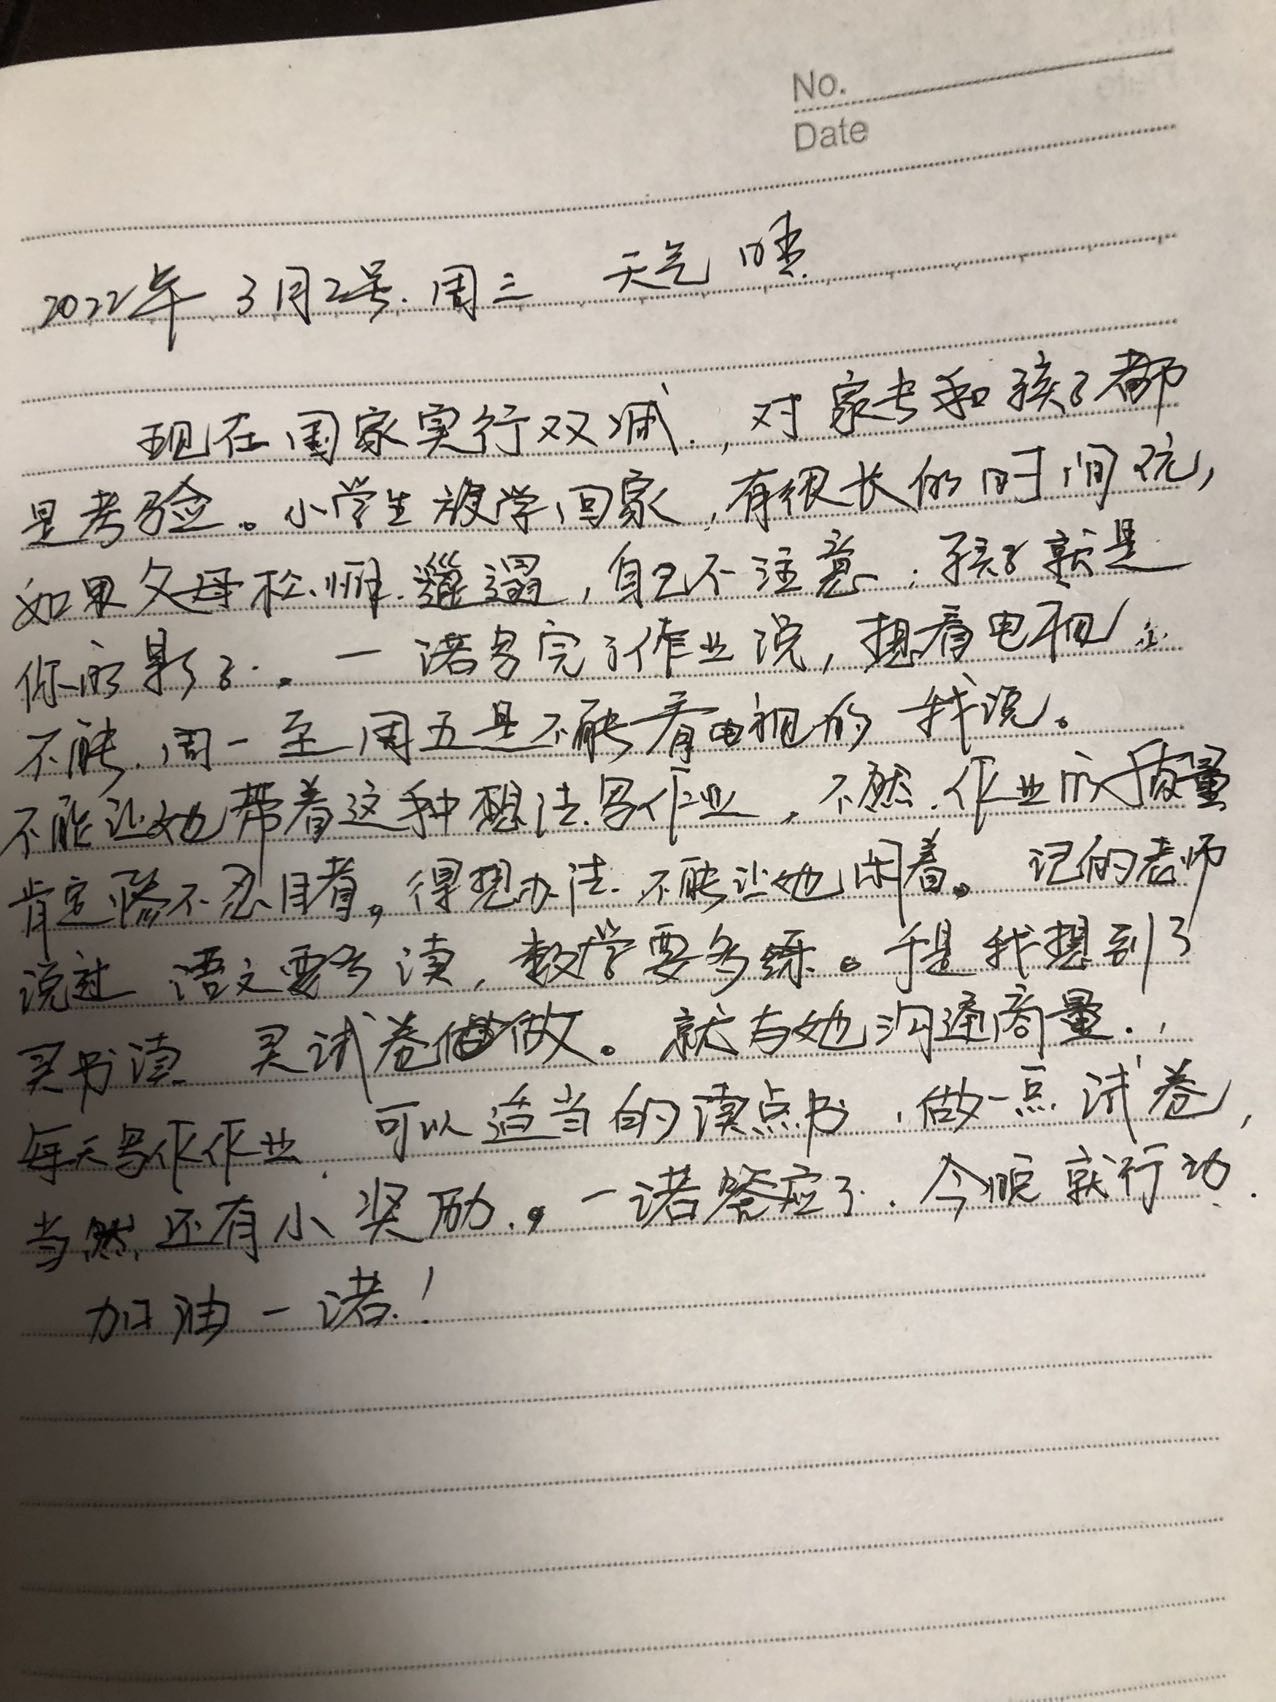 No.
Date
2022年 3月2号.周三 天气 晴
现在国家实行双减.,对家长和孩子都
是考验。小学生放学回家,有很长的时间玩,
如果父母松懈.邋遢,自己不注意.孩子就是
你的影子.。一诺写完了作业说,想看电视.
不能.周一至周五是不能看电视的 我说。
不能让她带着这种想法.写作业,不然.作业的质量
肯定惨不忍目睹。得想办法.不能让她闲着。记的老师
说过 语文要多读,数学要多练。于是我想到了
买书读. 买试卷做做。就与她沟通商量.,
每天写作作业, 可以适当的读点书,做一点试卷,
当然还有小奖励.。一诺答应了.今晚就行动.
加油一诺.!